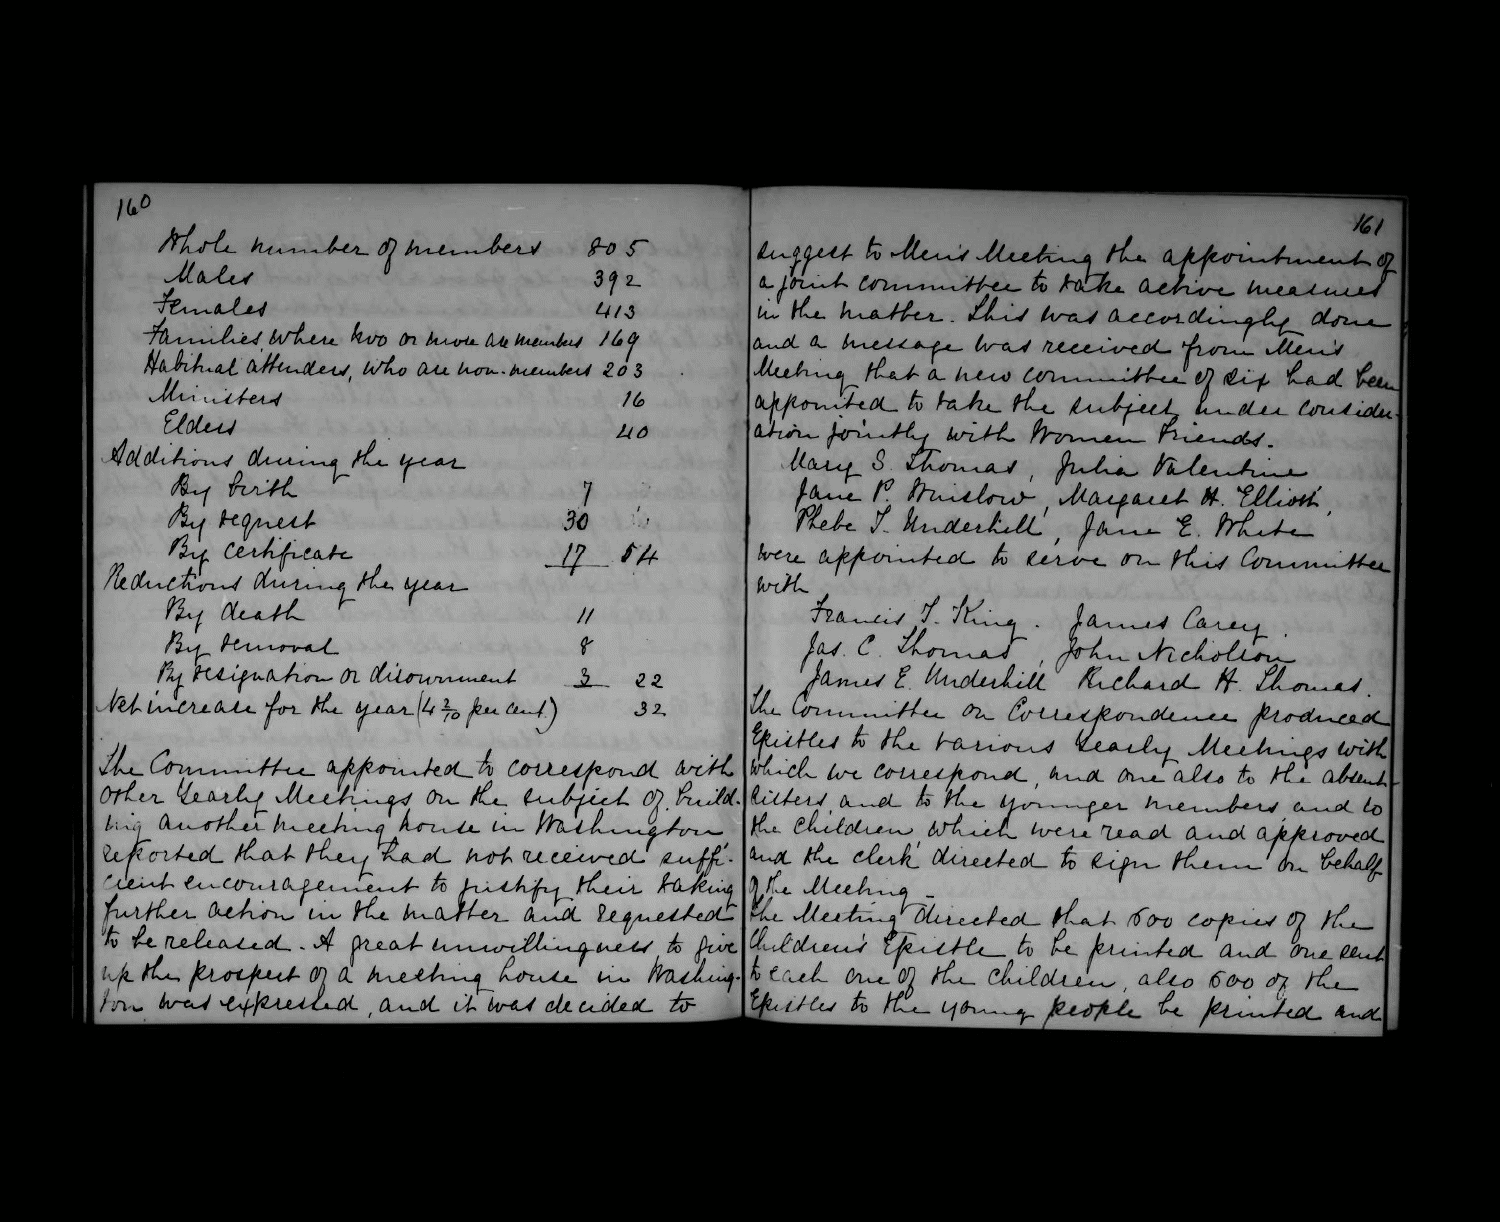 160
Whole number of members 805
Males 392
Females 413
Families where two or more are members 169
Habitual attenders, who are non-members 203
Ministers 16
Elders 40
Additions during the year
By birth 7
By request 30
By certificate 17 54
Reductions during the year
By death 11
By removal 8
By resignation or disownment 3 22
Net increase for the year (4 2/10 per cent.) 32
The Committee appointed to correspond with
other Yearly Meetings on the subject of build-
ing another meeting house in Washington
reported that they had not received suffi-
cient encouragement to justify their taking
further action in the matter and requested
to be released. A great unwillingness to give
up the prospect of a meeting house in Washing-
ton was expressed, and it was decided to
161
suggest to Men's Meeting the appointment of
a joint committee to take active measures
in the matter. This was accordingly done
and a message was received from Men's
Meeting that a new committee of six had been
appointed to take the subject under consider-
ation jointly with Women Friends.
Mary S. Thomas, Julia Valentine
Jane P. Winslow, Margaret H. Elliott,
Phebe T. Underhill, Jane E. White
were appointed to serve on this Committee
with
Francis T. King. James Carey.
Jas. C. Thomas, John Nicholson
James E. Underhill Richard H. Thomas.
The Committee on Correspondence produced
Epistles to the various Yearly Meetings with
which we correspond, and one also to the absent
sisters and to the younger members and to
the children, which were read and approved
and the clerk directed to sign them on behalf
of the Meeting.
The Meeting directed that 500 copies of the
Children's Epistle to be printed and one sent
to each one of the children, also 500 of the
Epistles to the young people be printed and